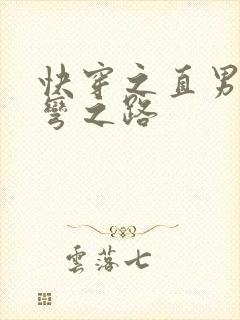 快穿之直男
彎之路
雲落七